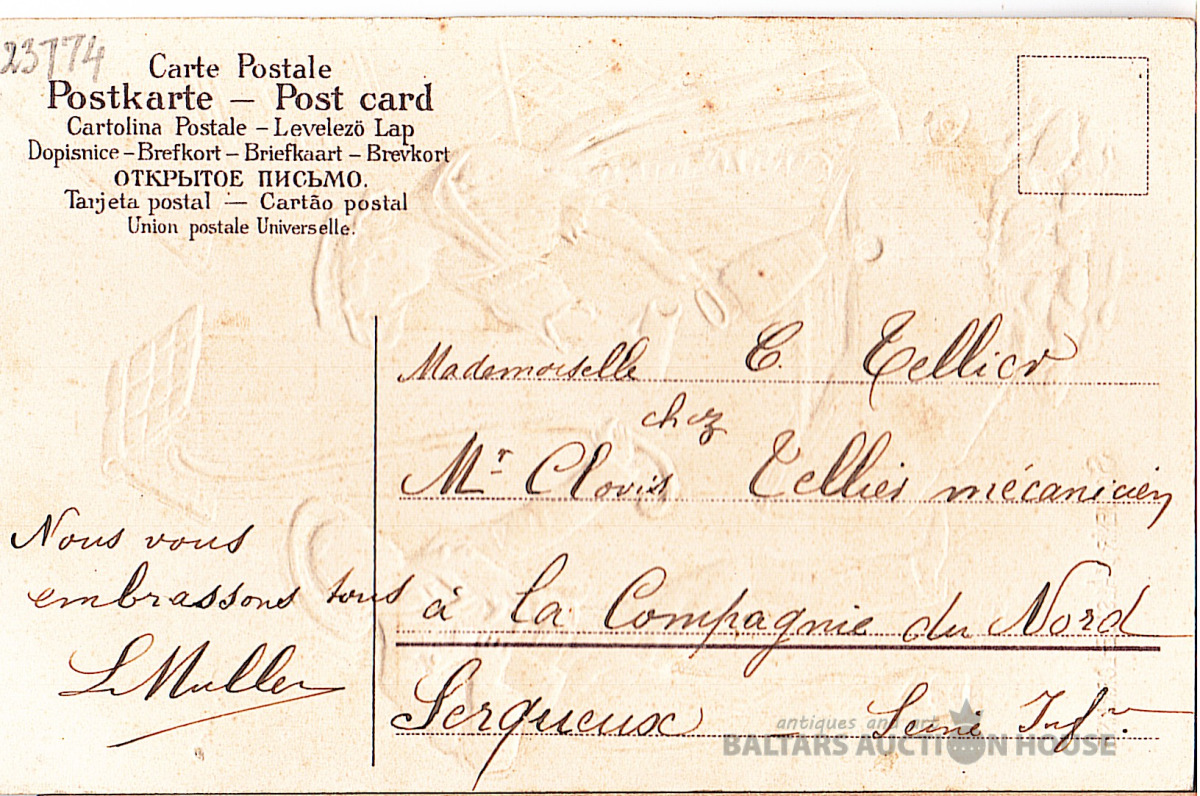 23774
Carte Postale
Postkarte — Post card
Cartolina Postale – Levelezö Lap
Dopisnice – Brefkort – Briefkaart – Brevkort
ОТКРЫТОЕ ПИСЬМО.
Tarjeta postal — Cartão postal
Union postale Universelle.
Mademoiselle C. Tellier
chez
Mr Clovis Tellier mécanicien
à la Compagnie du Nord
Serqueux — Seine Infre.
Nous vous
embrassons tous
L Muller
antiques and art
BALTARS AUCTION HOUSE